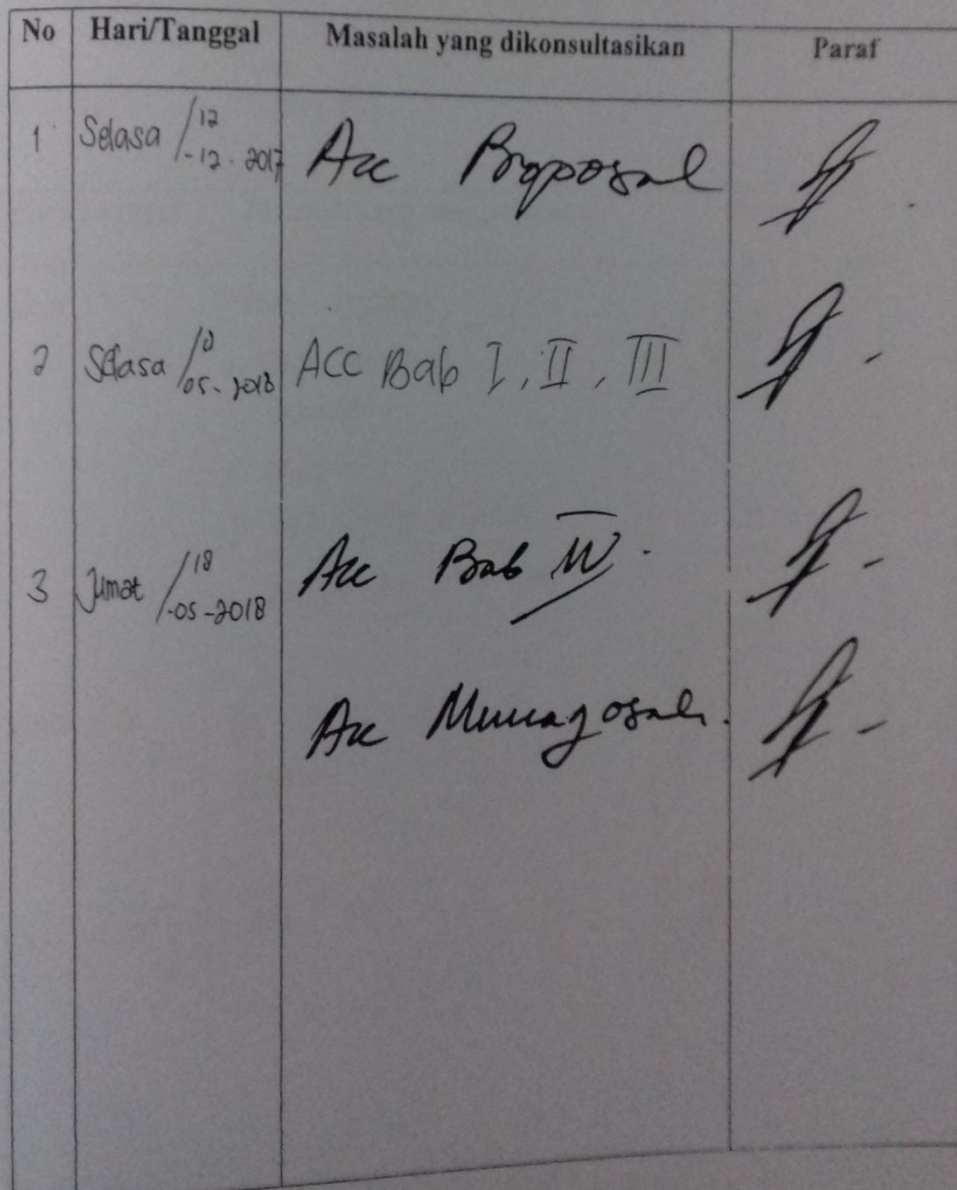 No Hari/Tanggal Masalah yang dikonsultasikan Paraf
1 Selasa /12 -12-2017 Acc Proposal
2 Selasa /8 05-2018 ACC Bab I, II, III
3 Jumat /18 -05-2018 Acc Bab IV.
Acc Munaqosah.